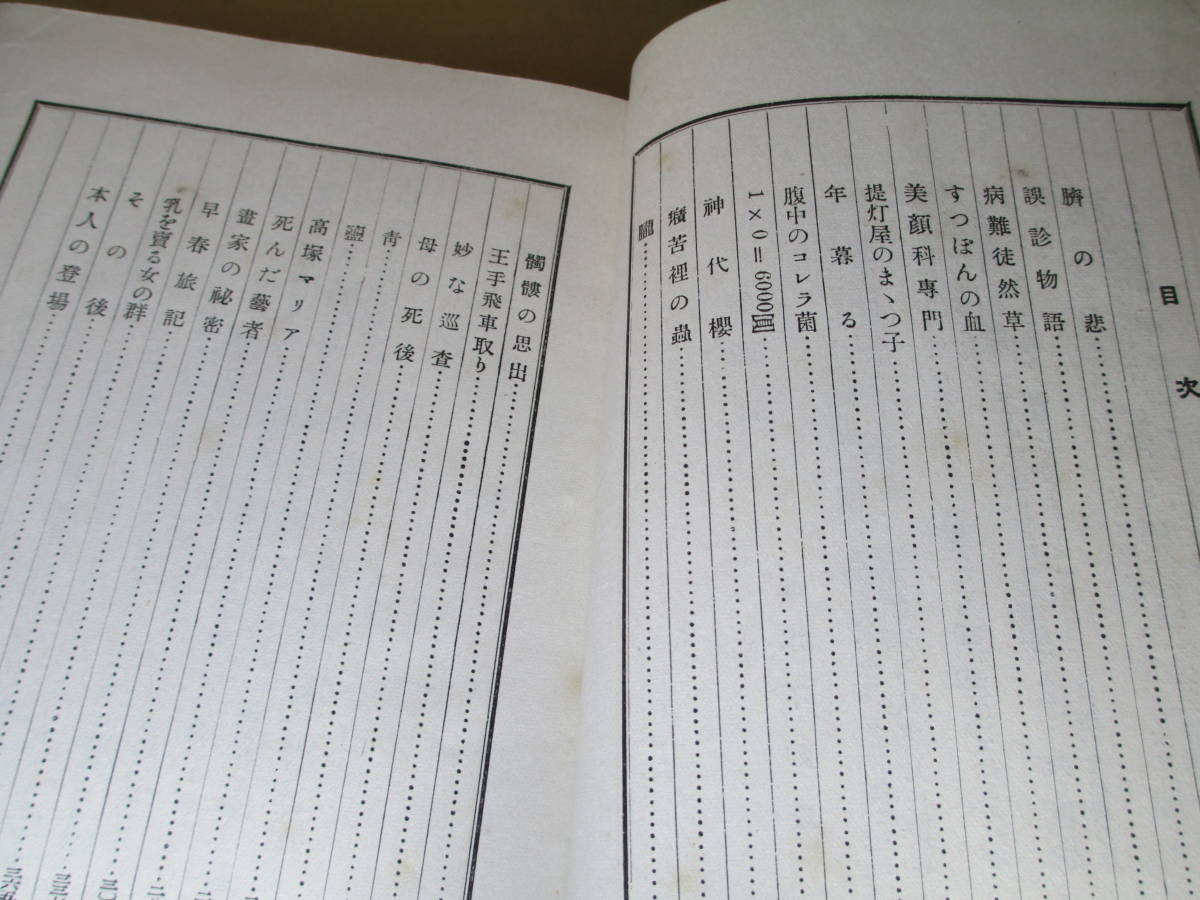 目次
臍の悲
誤診物語
病難徒然草
すつぽんの血
美顔科專門
提灯屋のまゝつ子
年暮る
腹中のコレラ菌
1×0＝6000圓
神代櫻
癪苦裡の蟲
髑髏の思出
王手飛車取り
妙な巡査
母の死後
靑
鹽
高塚マリア
死んだ藝者
畫家の祕密
早春旅記
乳を賣る女の群
その後
本人の登場